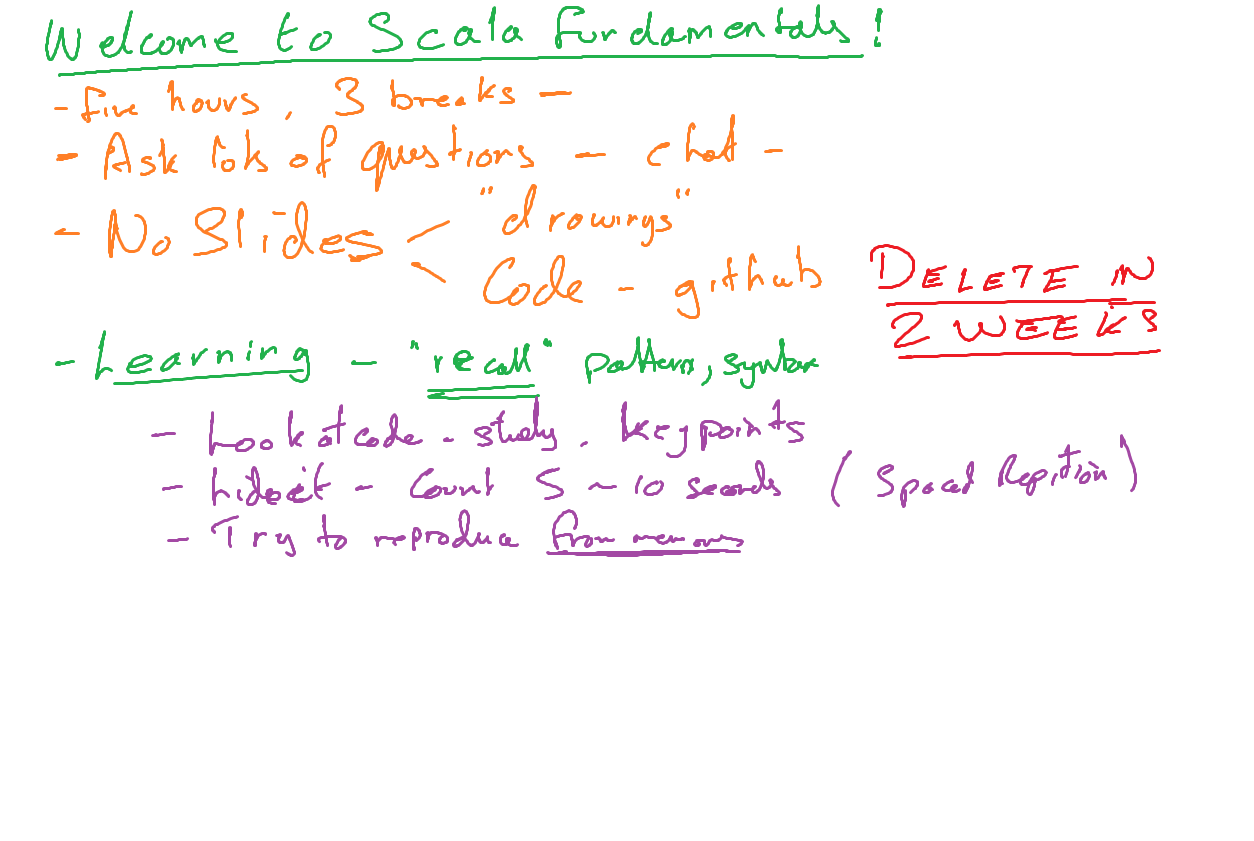 Welcome to Scala Fundamentals!
- Five hours, 3 breaks -
- Ask lots of questions - chat -
- No Slides < "drawings"
Code - github
DELETE IN
2 WEEKS
- Learning - "recall" pattern, syntax
- Look at code - study. key points
- hide it - Count 5 ~ 10 seconds (Spaced Repition)
- Try to reproduce from memory